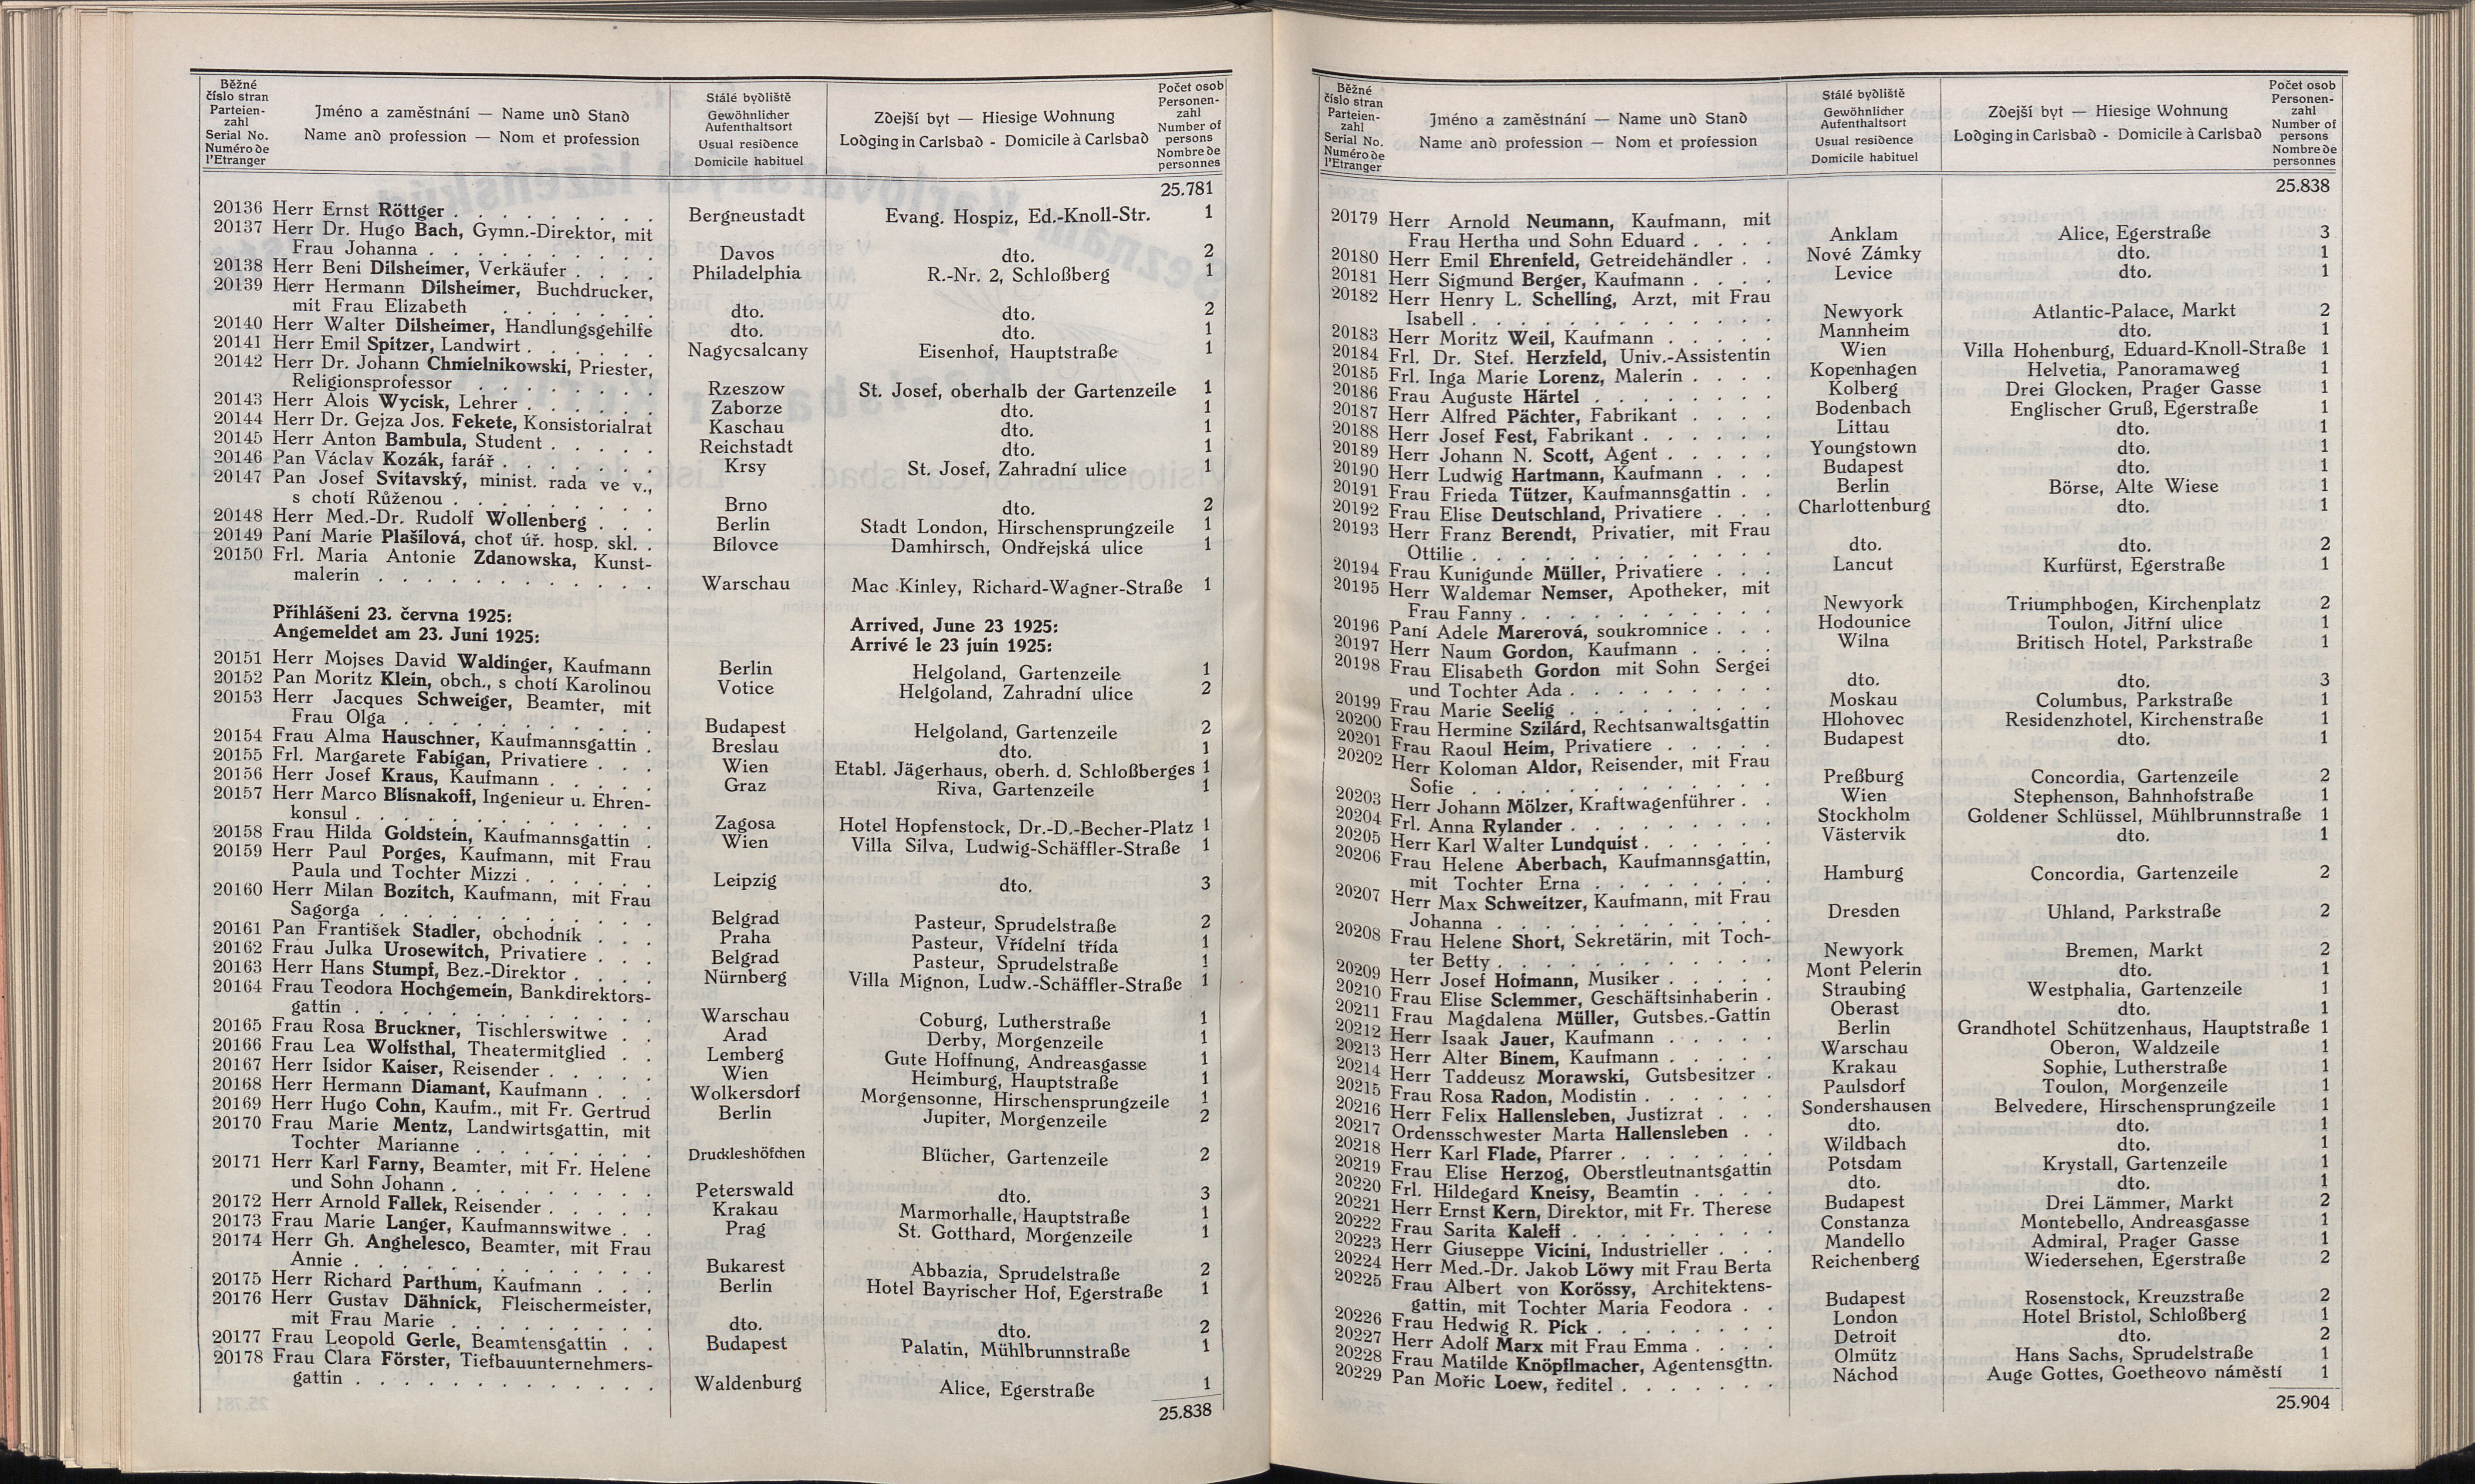 Běžné
číslo stran
Parteien-
zahl
Serial No.
Numéro de
l'Etranger
Jméno a zaměstnání — Name und Stand
Name and profession — Nom et profession
Stálé bydliště
Gewöhnlicher
Aufenthaltsort
Usual residence
Domicile habituel
Zdejší byt — Hiesige Wohnung
Lodging in Carlsbad - Domicile à Carlsbad
Počet osob
Personen-
zahl
Number of
persons
Nombre de
personnes
25.781
20136 Herr Ernst Röttger . . . . . . . . . Bergneustadt Evang. Hospiz, Ed.-Knoll-Str. 1
20137 Herr Dr. Hugo Bach, Gymn.-Direktor, mit
Frau Johanna . . . . . . . . . . Davos dto. 2
20138 Herr Beni Dilsheimer, Verkäufer . . . . Philadelphia R.-Nr. 2, Schloßberg 1
20139 Herr Hermann Dilsheimer, Buchdrucker,
mit Frau Elizabeth . . . . . . . dto. dto. 2
20140 Herr Walter Dilsheimer, Handlungsgehilfe dto. dto. 1
20141 Herr Emil Spitzer, Landwirt . . . . . . Nagycsalcany Eisenhof, Hauptstraße 1
20142 Herr Dr. Johann Chmielnikowski, Priester,
Religionsprofessor . . . . . . . . Rzeszow St. Josef, oberhalb der Gartenzeile 1
20143 Herr Alois Wycisk, Lehrer . . . . . . Zaborze dto. 1
20144 Herr Dr. Gejza Jos. Fekete, Konsistorialrat Kaschau dto. 1
20145 Herr Anton Bambula, Student . . . . . Reichstadt dto. 1
20146 Pan Václav Kozák, farář . . . . . . . Krsy St. Josef, Zahradní ulice 1
20147 Pan Josef Svitavský, minist. rada ve v.,
s chotí Růženou . . . . . . . . . Brno dto. 2
20148 Herr Med.-Dr. Rudolf Wollenberg . . . Berlin Stadt London, Hirschensprungzeile 1
20149 Paní Marie Plašilová, choť úř. hosp. skl. . Bílovce Damhirsch, Ondřejská ulice 1
20150 Frl. Maria Antonie Zdanowska, Kunst-
malerin . . . . . . . . . . . . Warschau Mac Kinley, Richard-Wagner-Straße 1
Přihlášeni 23. června 1925:
Angemeldet am 23. Juni 1925:
Arrived, June 23 1925:
Arrivé le 23 juin 1925:
20151 Herr Mojses David Waldinger, Kaufmann Berlin Helgoland, Gartenzeile 1
20152 Pan Moritz Klein, obch., s chotí Karolinou Votice Helgoland, Zahradní ulice 2
20153 Herr Jacques Schweiger, Beamter, mit
Frau Olga . . . . . . . . . . . Budapest Helgoland, Gartenzeile 2
20154 Frau Alma Hauschner, Kaufmannsgattin . Breslau dto. 1
20155 Frl. Margarete Fabigan, Privatiere . . . Wien Etabl. Jägerhaus, oberh. d. Schloßberges 1
20156 Herr Josef Kraus, Kaufmann . . . . . Graz Riva, Gartenzeile 1
20157 Herr Marco Blisnakoff, Ingenieur u. Ehren-
konsul . . . . . . . . . . . . . Zagosa Hotel Hopfenstock, Dr.-D.-Becher-Platz 1
20158 Frau Hilda Goldstein, Kaufmannsgattin . Wien Villa Silva, Ludwig-Schäffler-Straße 1
20159 Herr Paul Porges, Kaufmann, mit Frau
Paula und Tochter Mizzi . . . . . . Leipzig dto. 3
20160 Herr Milan Bozitch, Kaufmann, mit Frau
Sagorga . . . . . . . . . . . . Belgrad Pasteur, Sprudelstraße 2
20161 Pan František Stadler, obchodník . . . Praha Pasteur, Vřídelní třída 1
20162 Frau Julka Urosewitch, Privatiere . . . Belgrad Pasteur, Sprudelstraße 1
20163 Herr Hans Stumpf, Bez.-Direktor . . . . Nürnberg Villa Mignon, Ludw.-Schäffler-Straße 1
20164 Frau Teodora Hochgemein, Bankdirektors-
gattin . . . . . . . . . . . . . Warschau Coburg, Lutherstraße 1
20165 Frau Rosa Bruckner, Tischlerswitwe . . Arad Derby, Morgenzeile 1
20166 Frau Lea Wolfsthal, Theatermitglied . . Lemberg Gute Hoffnung, Andreasgasse 1
20167 Herr Isidor Kaiser, Reisender . . . . . Wien Heimburg, Hauptstraße 1
20168 Herr Hermann Diamant, Kaufmann . . . Wolkersdorf Morgensonne, Hirschensprungzeile 1
20169 Herr Hugo Cohn, Kaufm., mit Fr. Gertrud Berlin Jupiter, Morgenzeile 2
20170 Frau Marie Mentz, Landwirtsgattin, mit
Tochter Marianne . . . . . . . . Druckleshöfchen Blücher, Gartenzeile 2
20171 Herr Karl Farny, Beamter, mit Fr. Helene
und Sohn Johann . . . . . . . . . Peterswald dto. 3
20172 Herr Arnold Fallek, Reisender . . . . . Krakau Marmorhalle, Hauptstraße 1
20173 Frau Marie Langer, Kaufmannswitwe . . Prag St. Gotthard, Morgenzeile 1
20174 Herr Gh. Anghelesco, Beamter, mit Frau
Annie . . . . . . . . . . . . . Bukarest Abbazia, Sprudelstraße 2
20175 Herr Richard Parthum, Kaufmann . . . Berlin Hotel Bayrischer Hof, Egerstraße 1
20176 Herr Gustav Dähnick, Fleischermeister,
mit Frau Marie . . . . . . . . . dto. dto. 2
20177 Frau Leopold Gerle, Beamtensgattin . . Budapest Palatin, Mühlbrunnstraße 1
20178 Frau Clara Förster, Tiefbauunternehmers-
gattin . . . . . . . . . . . . . Waldenburg Alice, Egerstraße 1
25.838
Běžné
číslo stran
Parteien-
zahl
Serial No.
Numéro de
l'Etranger
Jméno a zaměstnání — Name und Stand
Name and profession — Nom et profession
Stálé bydliště
Gewöhnlicher
Aufenthaltsort
Usual residence
Domicile habituel
Zdejší byt — Hiesige Wohnung
Lodging in Carlsbad - Domicile à Carlsbad
Počet osob
Personen-
zahl
Number of
persons
Nombre de
personnes
25.838
20179 Herr Arnold Neumann, Kaufmann, mit
Frau Hertha und Sohn Eduard . . . . Anklam Alice, Egerstraße 3
20180 Herr Emil Ehrenfeld, Getreidehändler . . Nové Zámky dto. 1
20181 Herr Sigmund Berger, Kaufmann . . . . Levice dto. 1
20182 Herr Henry L. Schelling, Arzt, mit Frau
Isabell . . . . . . . . . . . . . Newyork Atlantic-Palace, Markt 2
20183 Herr Moritz Weil, Kaufmann . . . . . Mannheim dto. 1
20184 Frl. Dr. Stef. Herzfeld, Univ.-Assistentin Wien Villa Hohenburg, Eduard-Knoll-Straße 1
20185 Frl. Inga Marie Lorenz, Malerin . . . . Kopenhagen Helvetia, Panoramaweg 1
20186 Frau Auguste Härtel . . . . . . . . Kolberg Drei Glocken, Prager Gasse 1
20187 Herr Alfred Pächter, Fabrikant . . . . Bodenbach Englischer Gruß, Egerstraße 1
20188 Herr Josef Fest, Fabrikant . . . . . . Littau dto. 1
20189 Herr Johann N. Scott, Agent . . . . . Youngstown dto. 1
20190 Herr Ludwig Hartmann, Kaufmann . . . Budapest dto. 1
20191 Frau Frieda Tützer, Kaufmannsgattin . . Berlin Börse, Alte Wiese 1
20192 Frau Elise Deutschland, Privatiere . . . Charlottenburg dto. 1
20193 Herr Franz Berendt, Privatier, mit Frau
Ottilie . . . . . . . . . . . . . dto. dto. 2
20194 Frau Kunigunde Müller, Privatiere . . . Lancut Kurfürst, Egerstraße 1
20195 Herr Waldemar Nemser, Apotheker, mit
Frau Fanny . . . . . . . . . . . Newyork Triumphbogen, Kirchenplatz 2
20196 Paní Adele Marerová, soukromnice . . . Hodounice Toulon, Jitřní ulice 1
20197 Herr Naum Gordon, Kaufmann . . . . Wilna Britisch Hotel, Parkstraße 1
20198 Frau Elisabeth Gordon mit Sohn Sergei
und Tochter Ada . . . . . . . . . dto. dto. 3
20199 Frau Marie Seelig . . . . . . . . . Moskau Columbus, Parkstraße 1
20200 Frau Hermine Szilárd, Rechtsanwaltsgattin Hlohovec Residenzhotel, Kirchenstraße 1
20201 Frau Raoul Heim, Privatiere . . . . . Budapest dto. 1
20202 Herr Koloman Aldor, Reisender, mit Frau
Sofie . . . . . . . . . . . . . Preßburg Concordia, Gartenzeile 2
20203 Herr Johann Mölzer, Kraftwagenführer . . Wien Stephenson, Bahnhofstraße 1
20204 Frl. Anna Rylander . . . . . . . . . Stockholm Goldener Schlüssel, Mühlbrunnstraße 1
20205 Herr Karl Walter Lundquist . . . . . . Västervik dto. 1
20206 Frau Helene Aberbach, Kaufmannsgattin,
mit Tochter Erna . . . . . . . . Hamburg Concordia, Gartenzeile 2
20207 Herr Max Schweitzer, Kaufmann, mit Frau
Johanna . . . . . . . . . . . . Dresden Uhland, Parkstraße 2
20208 Frau Helene Short, Sekretärin, mit Toch-
ter Betty . . . . . . . . . . . . Newyork Bremen, Markt 2
20209 Herr Josef Hofmann, Musiker . . . . . Mont Pelerin dto. 1
20210 Frau Elise Sclemmer, Geschäftsinhaberin . Straubing Westphalia, Gartenzeile 1
20211 Frau Magdalena Müller, Gutsbes.-Gattin Oberast dto. 1
20212 Herr Isaak Jauer, Kaufmann . . . . . Berlin Grandhotel Schützenhaus, Hauptstraße 1
20213 Herr Alter Binem, Kaufmann . . . . . Warschau Oberon, Waldzeile 1
20214 Herr Taddeusz Morawski, Gutsbesitzer . Krakau Sophie, Lutherstraße 1
20215 Frau Rosa Radon, Modistin . . . . . . Paulsdorf Toulon, Morgenzeile 1
20216 Herr Felix Hallensleben, Justizrat . . . Sondershausen Belvedere, Hirschensprungzeile 1
20217 Ordensschwester Marta Hallensleben . . dto. dto. 1
20218 Herr Karl Flade, Pfarrer . . . . . . . Wildbach dto. 1
20219 Frau Elise Herzog, Oberstleutnantsgattin Potsdam Krystall, Gartenzeile 1
20220 Frl. Hildegard Kneisy, Beamtin . . . . dto. dto. 1
20221 Herr Ernst Kern, Direktor, mit Fr. Therese Budapest Drei Lämmer, Markt 2
20222 Frau Sarita Kaleff . . . . . . . . . Constanza Montebello, Andreasgasse 1
20223 Herr Giuseppe Vicini, Industrieller . . . Mandello Admiral, Prager Gasse 1
20224 Herr Med.-Dr. Jakob Löwy mit Frau Berta Reichenberg Wiedersehen, Egerstraße 2
20225 Frau Albert von Korössy, Architektens-
gattin, mit Tochter Maria Feodora . . Budapest Rosenstock, Kreuzstraße 2
20226 Frau Hedwig R. Pick . . . . . . . . London Hotel Bristol, Schloßberg 1
20227 Herr Adolf Marx mit Frau Emma . . . . Detroit dto. 2
20228 Frau Matilde Knöpflmacher, Agentensgttn. Olmütz Hans Sachs, Sprudelstraße 1
20229 Pan Mořic Loew, ředitel . . . . . . . Náchod Auge Gottes, Goetheovo náměstí 1
25.904